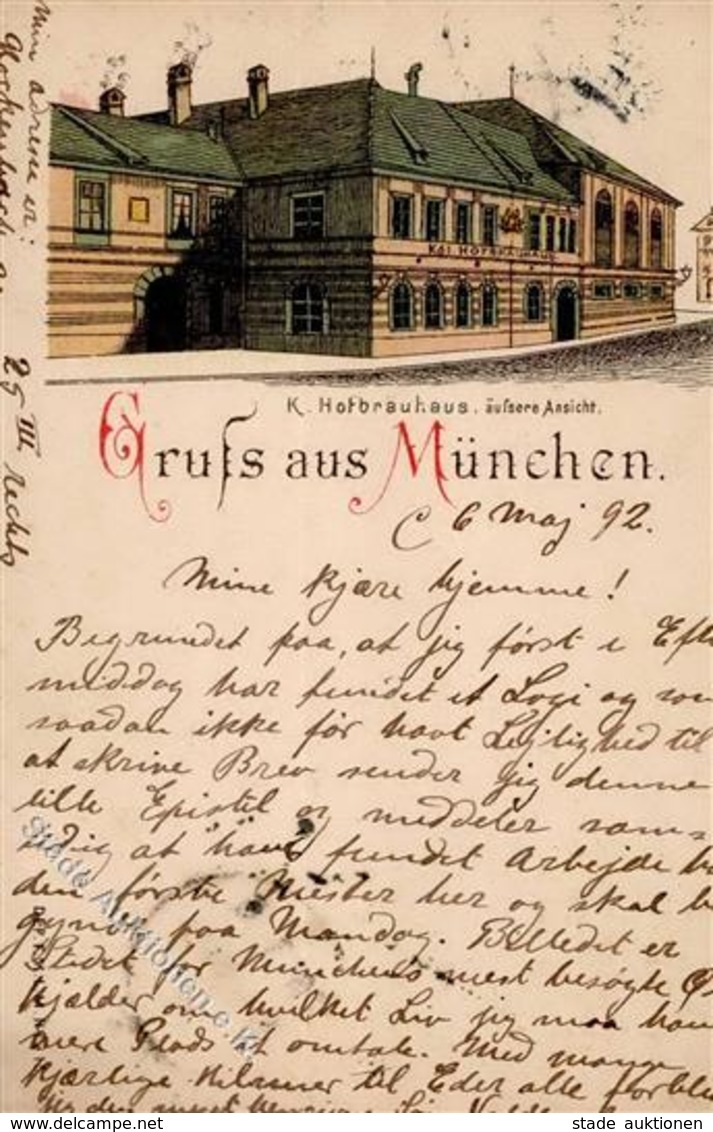 Min adresse er:
25 III rechts
KGL. HOFBRÄUHAUS
K. Hofbräuhaus. äufsere Ansicht.
Grufs aus München.
6 Maj 92.
Mine kjære hjemme!
Begrundet paa, at jeg först i Efter
middag har fundet et Logi og som
saadan ikke før havt Lejlighed til
at skrive Brev sender jeg denne
lille Epistel og meddeler sam=
tidig at have fundet Arbejde hos
den første Mester her og skal be
gynde paa Mandag. Billedet er
Stedet for Münchens mest besøgte Øl
kjælder om hvilket Liv jeg maa have
mere Plads at omtale. Med mange
kjærlige Hilsner til Eder alle forbliver
jeg den
Stade Auktionen e.K.
stade auktionen